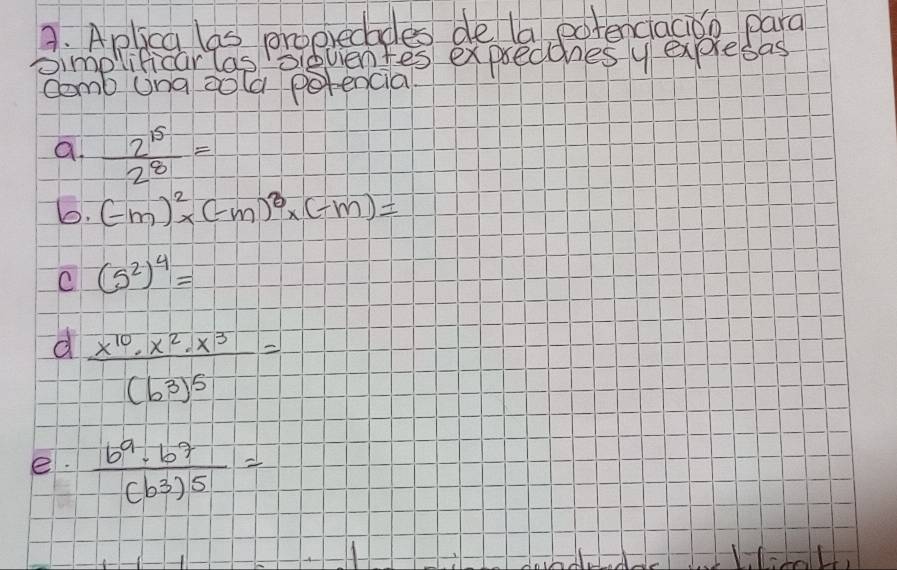 2. Aplica las propiedades de la potenciación para
simplificar las siguientes expreciones y expresas
como una sola potencia
a. 2¹⁵ / 2⁸ =
b. (-m)² x (-m)⁸ x (-m) =
c (5²)⁴ =
d x¹⁰ · x² · x³ / (b³)⁵ =
e. b⁹ · b⁷ / (b³)⁵ =